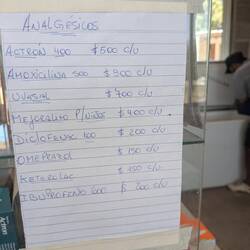 ANALGÉSICOS
ACTRON 400 $500 c/u
AMOXICILINA 500 $900 c/u
UVASAL $700 c/u
MEJORALITO P/NIÑOS $400 c/u.
DICLOFENAC $200 c/u
OMEPRAZOL $150 c/u
KETEROLAC $150 c/u
IBUPROFENO 600 $200 c/u
Actron